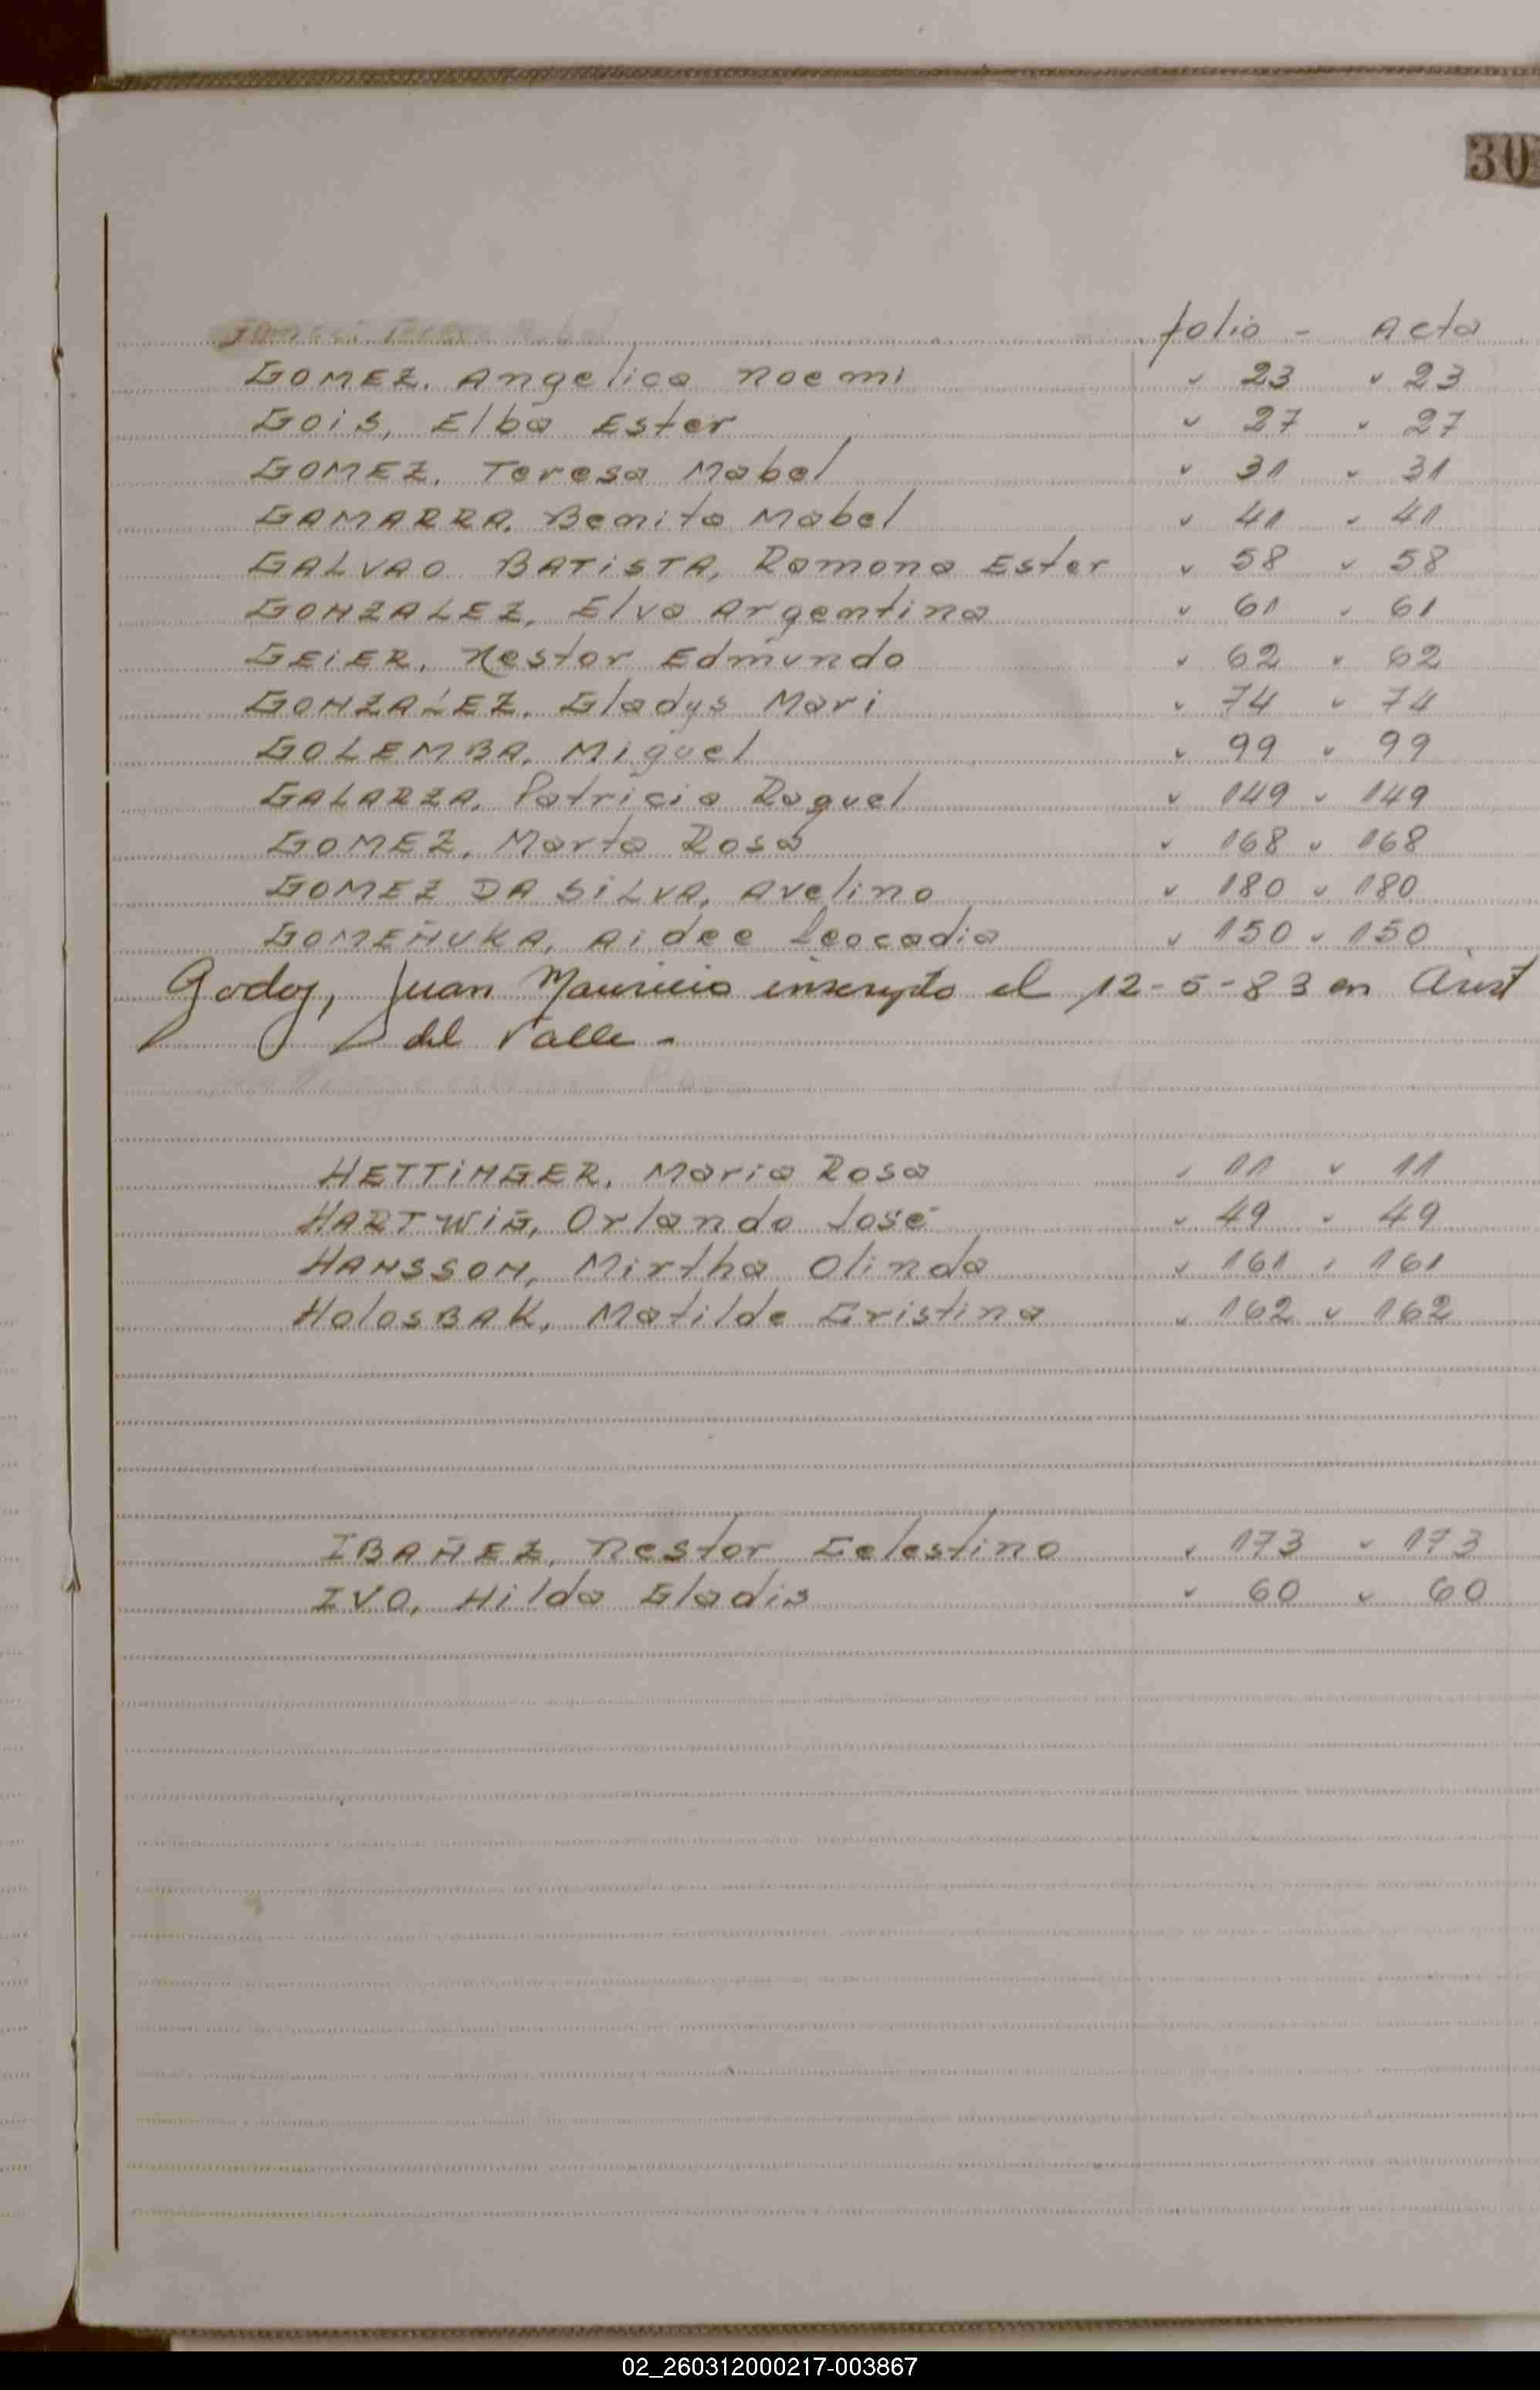 30
folio - Acta
GOMEZ, Angelica Noemi " 23 " 23
GOIS, Elba Ester " 27 " 27
GOMEZ, Teresa Mabel " 31 " 31
GAMARRA, Benita Mabel " 41 " 41
GALVAO BATISTA, Ramona Ester " 58 " 58
GONZALEZ, Elva Argentina " 61 " 61
GEIER, Nestor Edmundo " 62 " 62
GONZALEZ, Gladys Mari " 74 " 74
GOLEMBA, Miguel " 99 " 99
GALARZA, Patricia Raquel " 149 " 149
GOMEZ, Marta Rosa " 168 " 168
GOMEZ DA SILVA, Avelino " 180 " 180
GOMEÑUKA, Aidee Leocadia " 150 " 150
Godoy, Juan Mauricio inscripto el 12-5-83 en Arist
del Valle -
HETTINGER, Maria Rosa " 11 " 11
HARTWIG, Orlando José " 49 " 49
HANSSON, Mirtha Olinda " 161 " 161
HolosBAK, Matilde Cristina " 162 " 162
IBAÑEZ, Nestor Celestino " 173 " 173
IVO, Hilda Gladis " 60 " 60
02_260312000217-003867